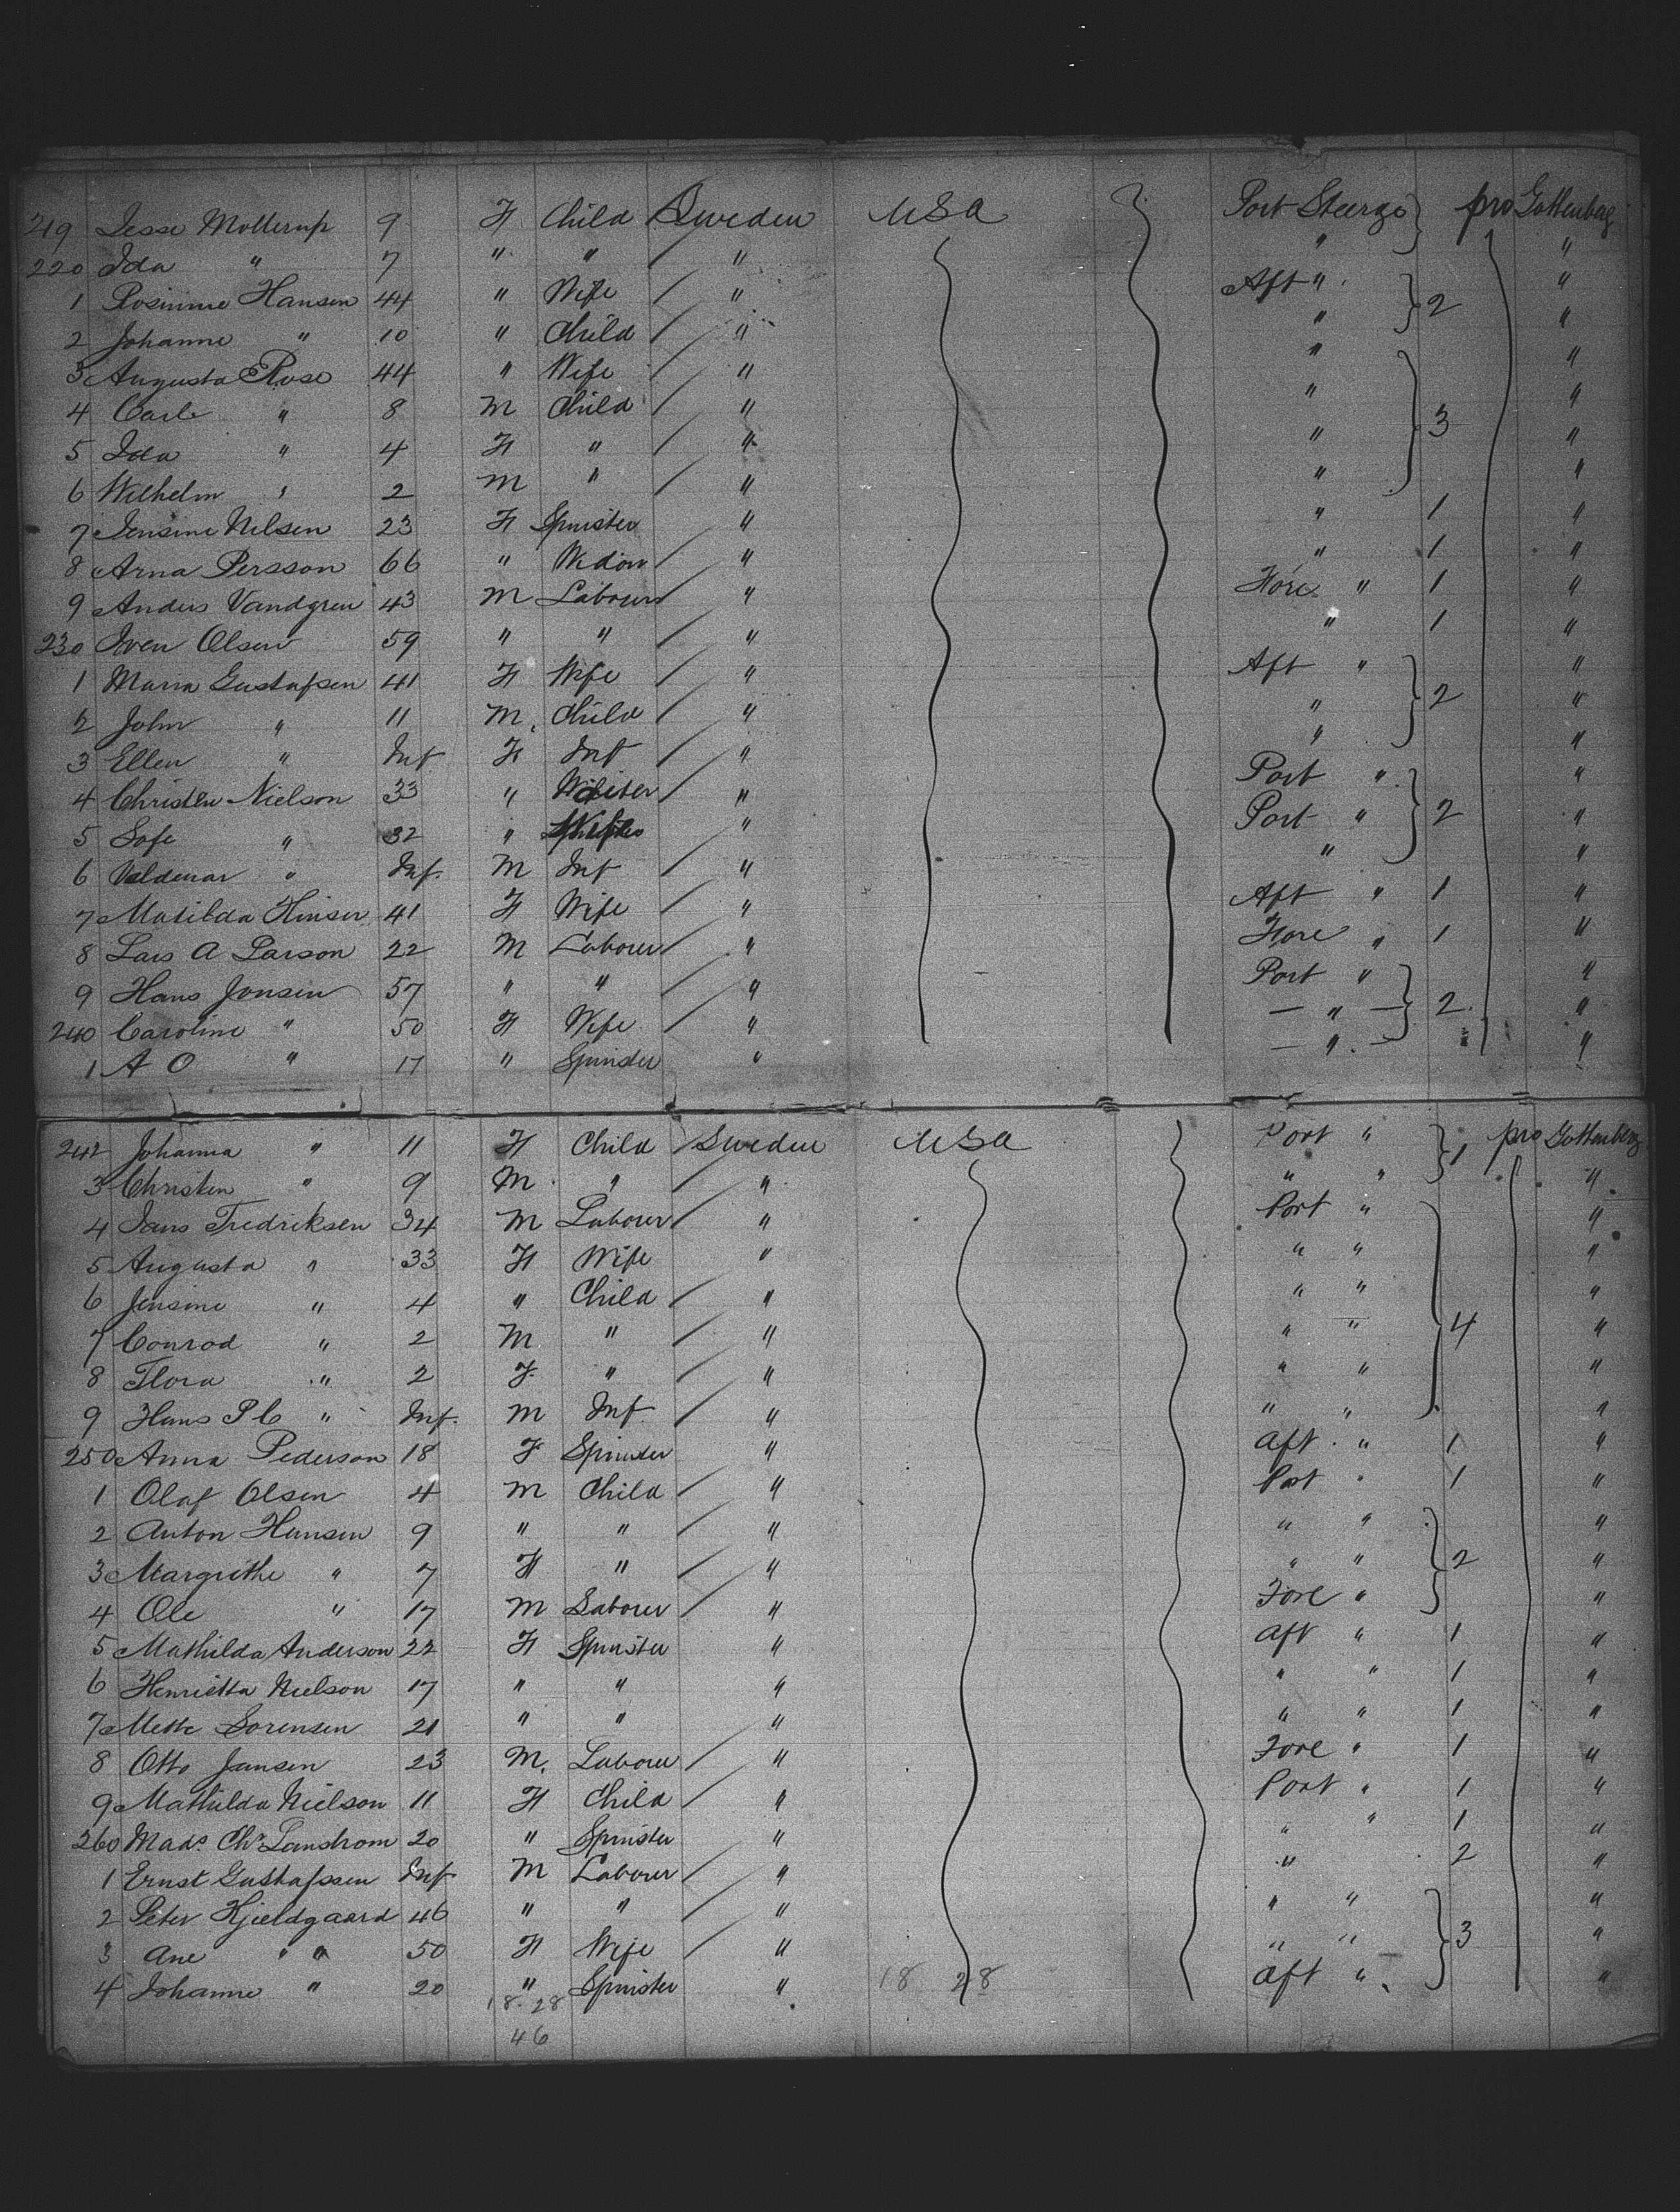 219 Jesse Mollerup 9 F Child Sweden USA Port Steerge } pro Gottenbag
220 Ida " 7 " " / " " "
1 Rosinme Hansen 44 " Wife / " Aft " } 2 "
2 Johanne " 10 " Child / " " "
3 Augusta Rose 44 " Wife / " " } 3 "
4 Carl " 8 M Child / " " "
5 Ida " 4 F " / " " "
6 Wilhelm " 2 M " / " " "
7 Jensine Nilsen 23 F Spinster " " 1 "
8 Arna Persson 66 " Widow / " " 1 "
9 Anders Vandgren 43 M Labourer " Fore " 1 "
230 Sven Olsen 59 " " / " " 1 "
1 Maria Gustafsen 41 F Wife / " Aft " } 2 "
2 John " 11 M. Child / " " "
3 Ellen " Inf F Inf / " " "
4 Christen Nielson 33 " / " Port " } 2 "
5 Sofe " 32 " " Port " "
6 Valdemar " Inf. M Inf / " " "
7 Matilda 41 F Wife / " Aft " 1 "
8 Lars A Larson 22 M Laborer / " Fore " 1 "
9 Hans Jonsen 57 " " / " Port " } 2 "
240 Caroline " 50 F Wife / " — " — "
1 A O " 17 " Spinster " — " — "
242 Johanna " 11 F Child / Sweden USA Port " } 1 pro Gottenberg
3 Christen " 9 M " / " " " "
4 Jans Fredriksen 34 M Laborer / " Port " } 4 "
5 Augusta " 33 F Wife " " " "
6 Jensine " 4 " Child / " " " "
7 Conrod " 2 M " / " " " "
8 Flora " 2 F " / " " " "
9 Hans P C " Inf. M Inf / " " " "
250 Anna Pederson 18 F Spinster " Aft " 1 "
1 Olaf Olsen 4 M Child / " Port " 1 "
2 Anton Hansen 9 " " / " " " } 2 "
3 Margrethe " 7 F " / " " " "
4 Ole " 17 M Laborer / " Fore " "
5 Mathilda Anderson 22 F Spinster " Aft " 1 "
6 Henrietta Nielson 17 " " " " " 1 "
7 Mette Sorensen 21 " " " " " 1 "
8 Otto Jansen 23 M. Laborer / " Fore " 1 "
9 Mathilda Nielson 11 F Child / " Port " 1 "
260 Mads. Chr Lanstrom 20 " Spinster " " " 1 "
1 Ernst Gustafssen Inf M Laborer / " " 2 "
2 Peter Kjeldgaard 46 " " / " " " } 3 "
3 Ane " " 50 F Wife / " " " "
4 Johanne " 20 " Spinster " 18 28 Aft " "
18. 28
46